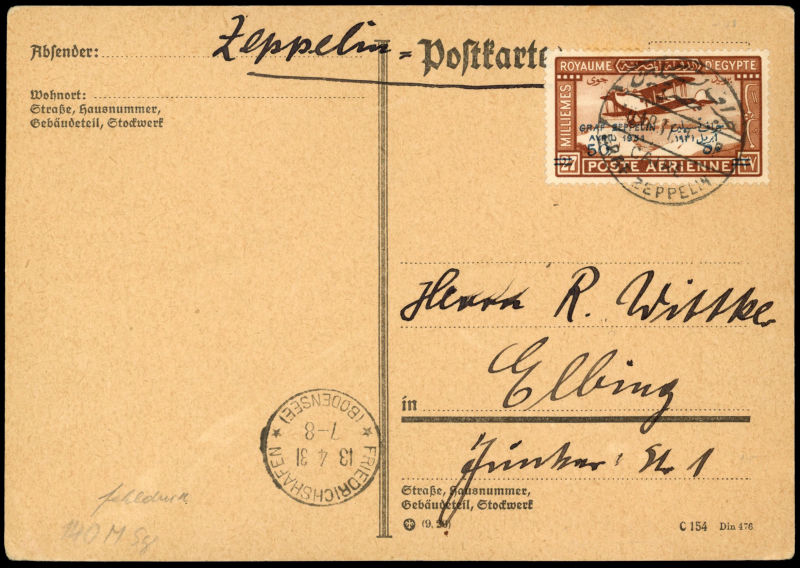 Absender:
Zeppelin = Postkarte
Wohnort:
Straße, Hausnummer,
Gebäudeteil, Stockwerk
ROYAUME D'EGYPTE
MILLIEMES
GRAF ZEPPELIN
AVRIL 1931
50
27 POSTE AERIENNE ٢٧
ZEPPELIN
Herrn R. Wittke
in Elbing
Junkerstr 1
Straße, Hausnummer,
Gebäudeteil, Stockwerk
(9. 29)
C 154 Din 476
FRIEDRICHSHAFEN
13 4 31
7–8
(BODENSEE)
140 M